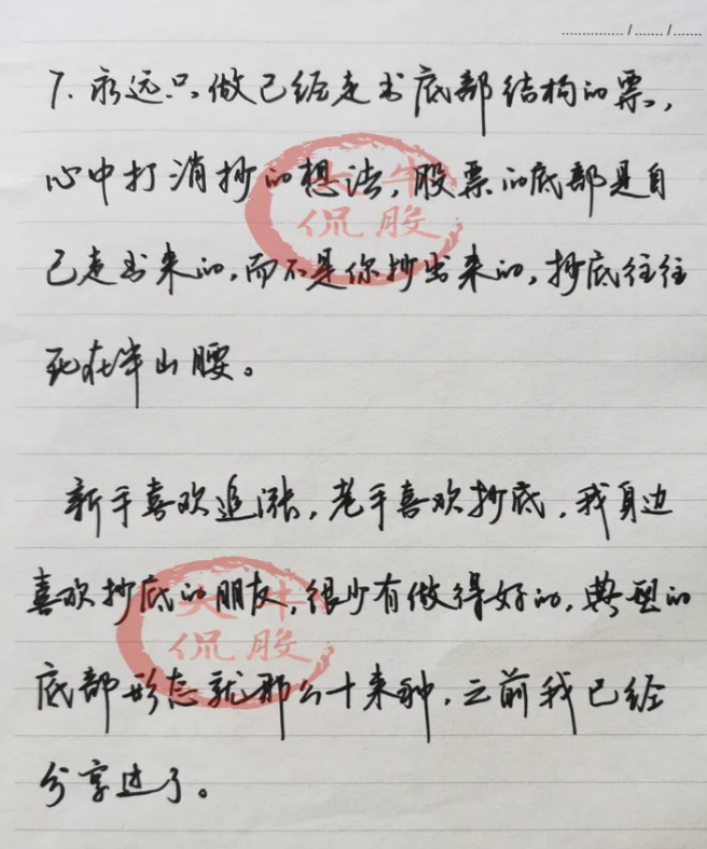 7. 永远只做已经走出底部结构的票，
心中打消抄的想法，股票的底部是自
己走出来的，而不是你抄出来的，抄底往往
死在半山腰。
新手喜欢追涨，老手喜欢抄底，我身边
喜欢抄底的朋友，很少有做得好的，典型的
底部形态就那么十来种，之前我已经
分享过了。
大牛
侃股
大牛
侃股